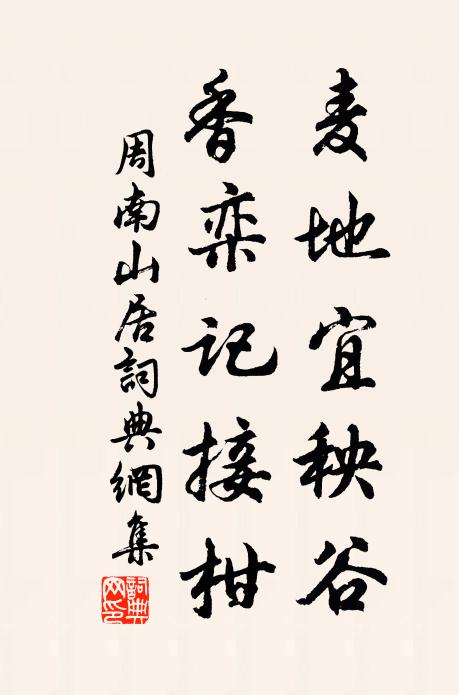 麦地宜秧谷
香栾记接柑
周南山居詞典網集
詞典网印